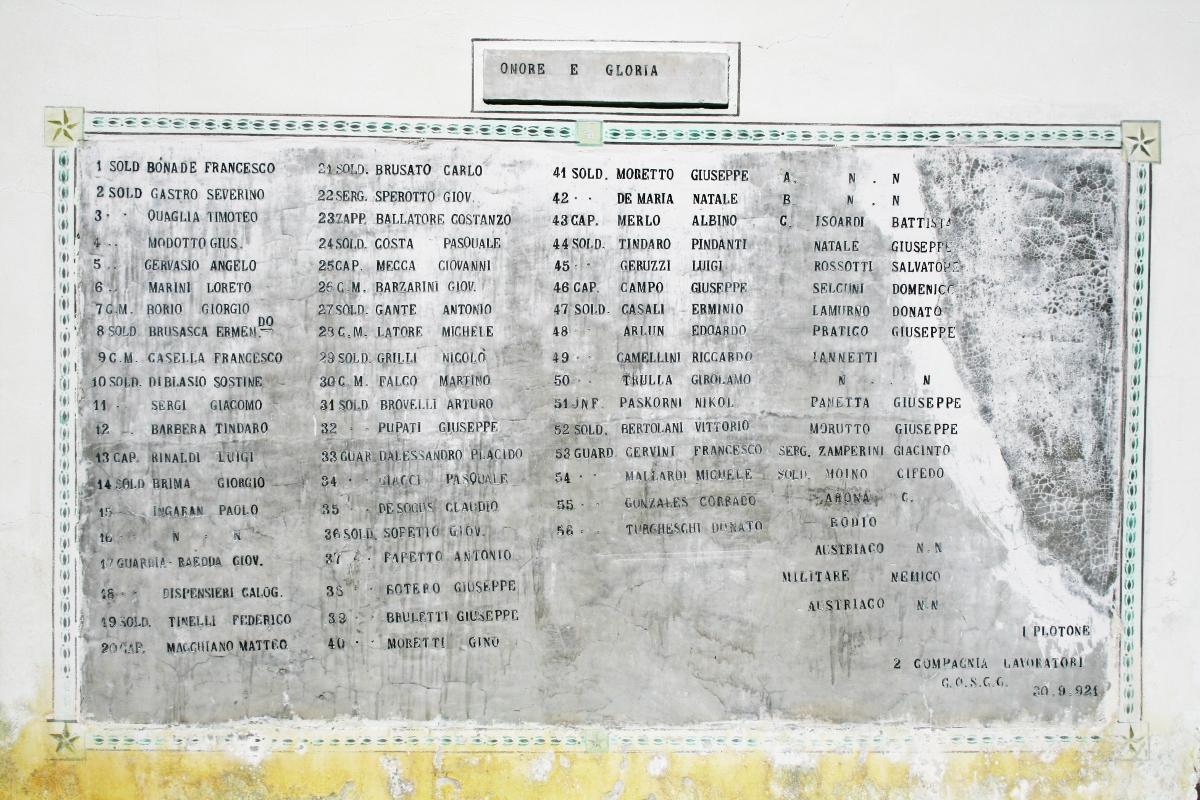 ONORE E GLORIA
1 SOLD BONADE FRANCESCO
2 SOLD GASTRO SEVERINO
3 · · QUAGLIA TIMOTEO
4 · · MODOTTO GIUS.
5 · · GERVASIO ANGELO
6 · · MARINI LORETO
7 C.M. BORIO GIORGIO
8 SOLD BRUSASCA ERMENDO
9 C.M. CASELLA FRANCESCO
10 SOLD. DIBLASIO SOSTINE
11 · SERGI GIACOMO
12 · · BARBERA TINDARO
13 CAP. RINALDI LUIGI
14 SOLD BRIMA GIORGIO
15 · · INGARAN PAOLO
16 · · N · N
17 GUARDIA RAEDDA GIOV.
18 · · DISPENSIERI CALOG.
19 SOLD. TINELLI FEDERICO
20 CAP. MACCHIANO MATTEO
21 SOLD. BRUSATO CARLO
22 SERG. SPEROTTO GIOV.
23 ZAPP. BALLATORE COSTANZO
24 SOLD. COSTA PASQUALE
25 CAP. MECCA GIOVANNI
26 C.M. BARZARINI GIOV.
27 SOLD. GANTE ANTONIO
28 C.M. LATORE MICHELE
29 SOLD. GRILLI NICOLÒ
30 C.M. FALCO MARTINO
31 SOLD BROVELLI ARTURO
32 · · PUPATI GIUSEPPE
33 GUAR DALESSANDRO PLACIDO
34 · · GIACCI PASQUALE
35 · · DESOGUS CLAUDIO
36 SOLD. SOFETIO GIOV.
37 · · FAPETTO ANTONIO
38 · · BOTERO GIUSEPPE
39 · · BRULETTI GIUSEPPE
40 · · MORETTI GINO
41 SOLD. MORETTO GIUSEPPE
42 · · DE MARIA NATALE
43 CAP. MERLO ALBINO
44 SOLD. TINDARO PINDANTI
45 · · GERUZZI LUIGI
46 CAP. CAMPO GIUSEPPE
47 SOLD. CASALI ERMINIO
48 · · ARLUN EDOARDO
49 · · CAMELLINI RICCARDO
50 · · TRULLA GIROLAMO
51 JNF. PASKORNI NIKOL
52 SOLD. BERTOLANI VITTORIO
53 GUARD CERVINI FRANCESCO
54 · · MALLARDI MICHELE
55 · · GONZALES CORRADO
56 · · TURGHESCHI DONATO
A. N . N
B N . N
C. ISOARDI BATTISTA
NATALE GIUSEPPE
ROSSOTTI SALVATORE
SELCINI DOMENICO
LAMURNO DONATO
PRATICO GIUSEPPE
IANNETTI
N . N
PANETTA GIUSEPPE
MORUTTO GIUSEPPE
SERG. ZAMPERINI GIACINTO
SOLD. MOINO CIFEDO
ARONA C.
RODIO
AUSTRIACO N.N
MILITARE NEMICO
AUSTRIACO N.N
1 PLOTONE
2 COMPAGNIA LAVORATORI
C.O.S.C.G.
30.9.921